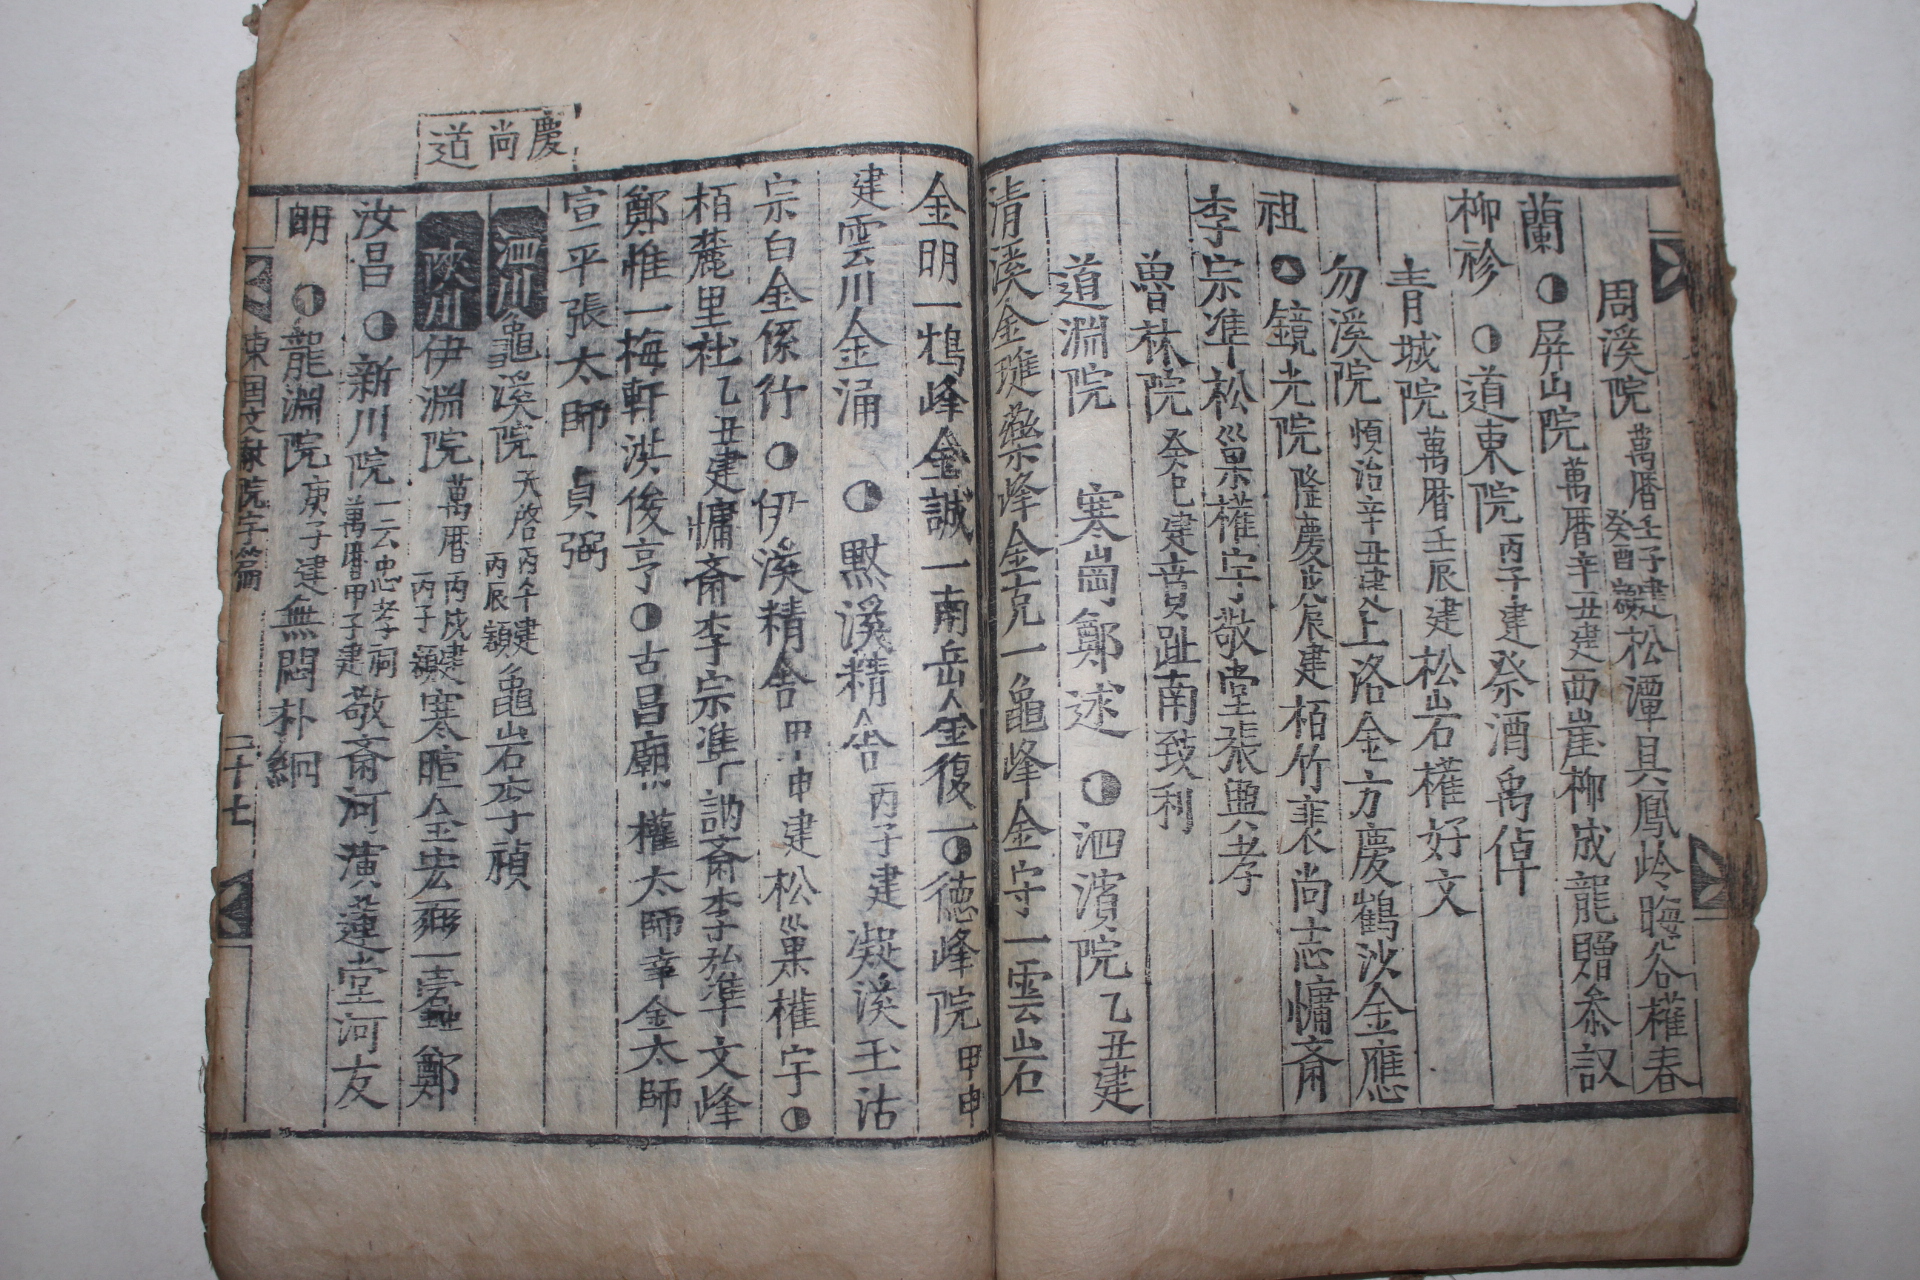 周溪院 萬曆壬子建 癸酉額 松潭具鳳岭 晦谷權春
蘭 屛山院 萬曆辛丑建 西崖柳成龍 贈叅議
柳袗 道東院 丙子建 祭酒禹倬
靑城院 萬曆壬辰建 松岩權好文
勿溪院 順治辛丑建 上洛金方慶 鶴沙金應
祖 鏡光院 隆慶戊辰建 栢竹裵尚志 慵斎
李宗準 松巢權宇 敬堂張興孝
魯林院 癸巳建 賁趾南致利
道淵院 寒岡鄭逑 泗濱院 乙丑建
淸溪金璡 藥峰金克一 龜峰金守一 雲岩
金明一 鶴峰金誠一 南岳金復一 德峰院 甲申
建 雲川金涌 黙溪精舍 丙子建 凝溪玉沽
宗白金係行 伊溪精舍 甲申建 松巢權宇
栢麓里社 乙丑建 慵斎李宗准 訥斎李弘準 文峰
鄭惟一 梅軒洪俊亨 古昌廟 權太師幸 金太師
宣平 張太師貞弼
慶尚道
泗川 龜溪院 天啓丙午建 丙辰額 龜岩李楨
陜川 伊淵院 萬曆丙戌建 丙子額 寒暄金宏弼 一蠹鄭
汝昌 新川院 一云忠孝祠 萬曆甲子建 敬斎河演 蓮堂河友
明 龍淵院 庚子建 無悶朴絪
東国文献院宇篇 二十七